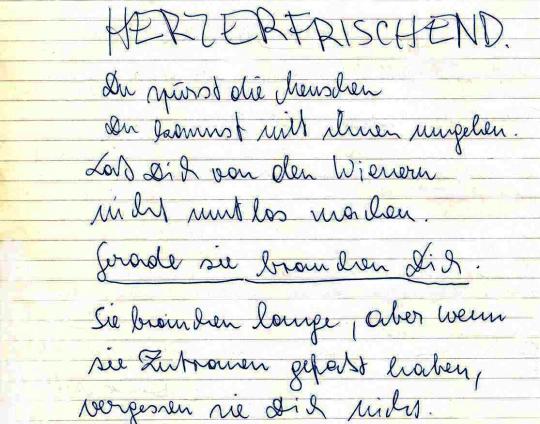 HERZERFRISCHEND.
Du spürst die Menschen
Du kannst mitt ihnen umgehen.
Laß Dich von den Wienern
nicht mutlos machen.
Gerade sie brauchen Dich.
Sie brauchen lange, aber wenn
sie Zutrauen gefaßt haben,
vergessen sie Dich nicht.